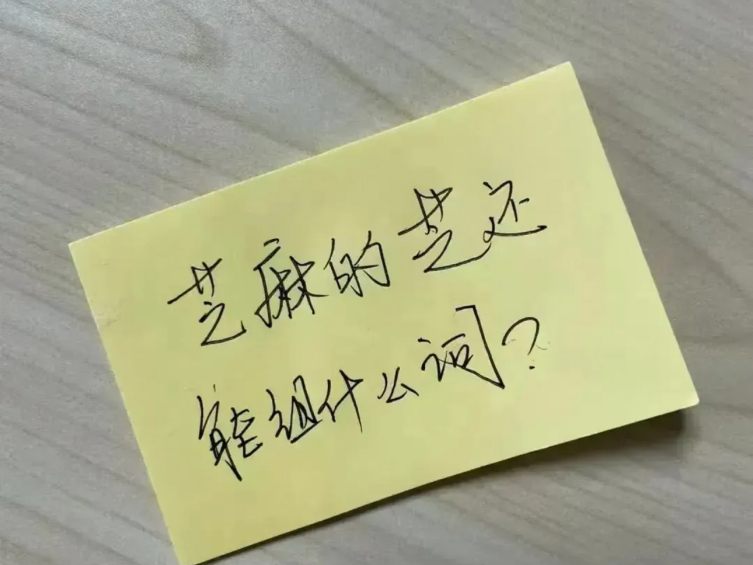 芝麻的芝还
能组什么词?